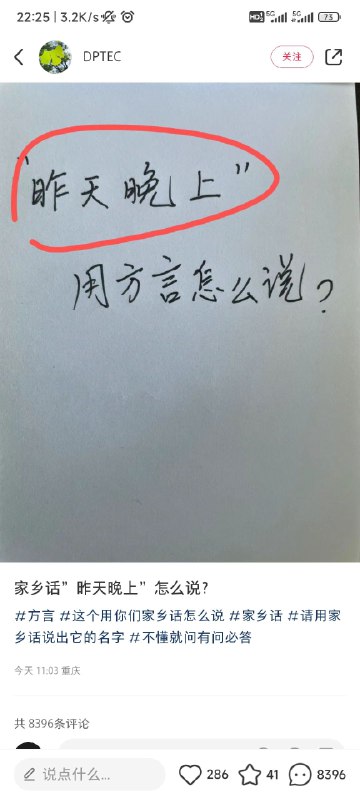 22:25 | 3.2K/s
HD 5G 5G 73
DPTEC
关注
“昨天晚上”
用方言怎么说？
家乡话”昨天晚上”怎么说？
#方言 #这个用你们家乡话怎么说 #家乡话 #请用家
乡话说出它的名字 #不懂就问有问必答
今天 11:03 重庆
共 8396条评论
说点什么... 286 41 8396